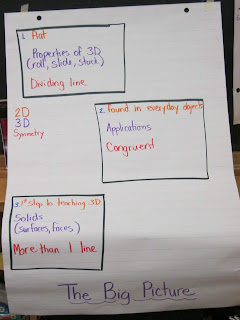 1. Flat
Properties of 3D
(roll, slide, stack)
Dividing line
2D
3D
Symmetry
2. found in everyday objects
Applications
Congruent
3. 1st step to teaching 3D
Solids
(surfaces, faces)
More than 1 line
The Big Picture